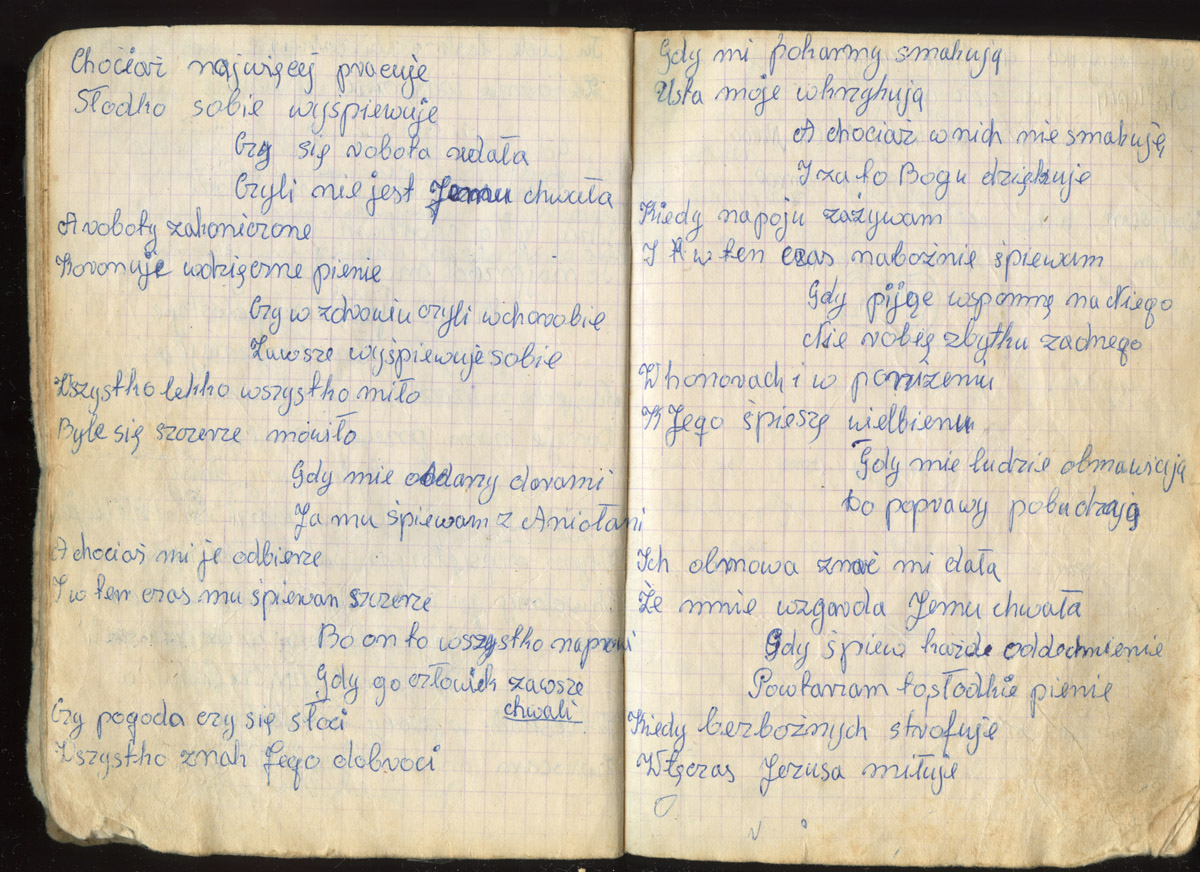 Chociaż najwięcej pracuje
Słodko sobie wyśpiewuje
Czy się robota udała
Czyli nie jest Jemu chwała
A roboty zakoniczone
Koronuje wdzięczne pienie
Czy w zdrowiu czyli w chorobie
Zawsze wyśpiewuje sobie
Wszystko lekko wszystko miło
Byle się szczerze mówiło
Gdy mie obdarzy darami
Ja mu śpiewam z Aniołami
A chociaś mi je odbierze
I w ten czas mu śpiewan szczerze
Bo on to wszystko naprawi
Gdy go człowiek zawsze
chwali
Czy pogoda czy się słoci
Wszystko znak Jego dobroci
Gdy mi pokarmy smakują
Usta moje wkrzykują
A chociaż w nich nie smakuję
I za to Bogu dziękuje
Kiedy napoju zażywam
I w ten czas nabożnie śpiewam
Gdy piję wspomnę na Niego
Nie robię zbytku zadnego
W honorach i w poniżeniu
K Jego śpieszę wielbieniu
Gdy mie ludzie obmawiają
Do poprawy pobudzają
Ich obmowa znać mi data
Że mnie wzgarda Jemu chwała
Gdy śpiew każde oddechnienie
Powtarzam tosłodkie pienie
Kiedy bezbożnych strofuje
Wtęczas Jezusa miłuje